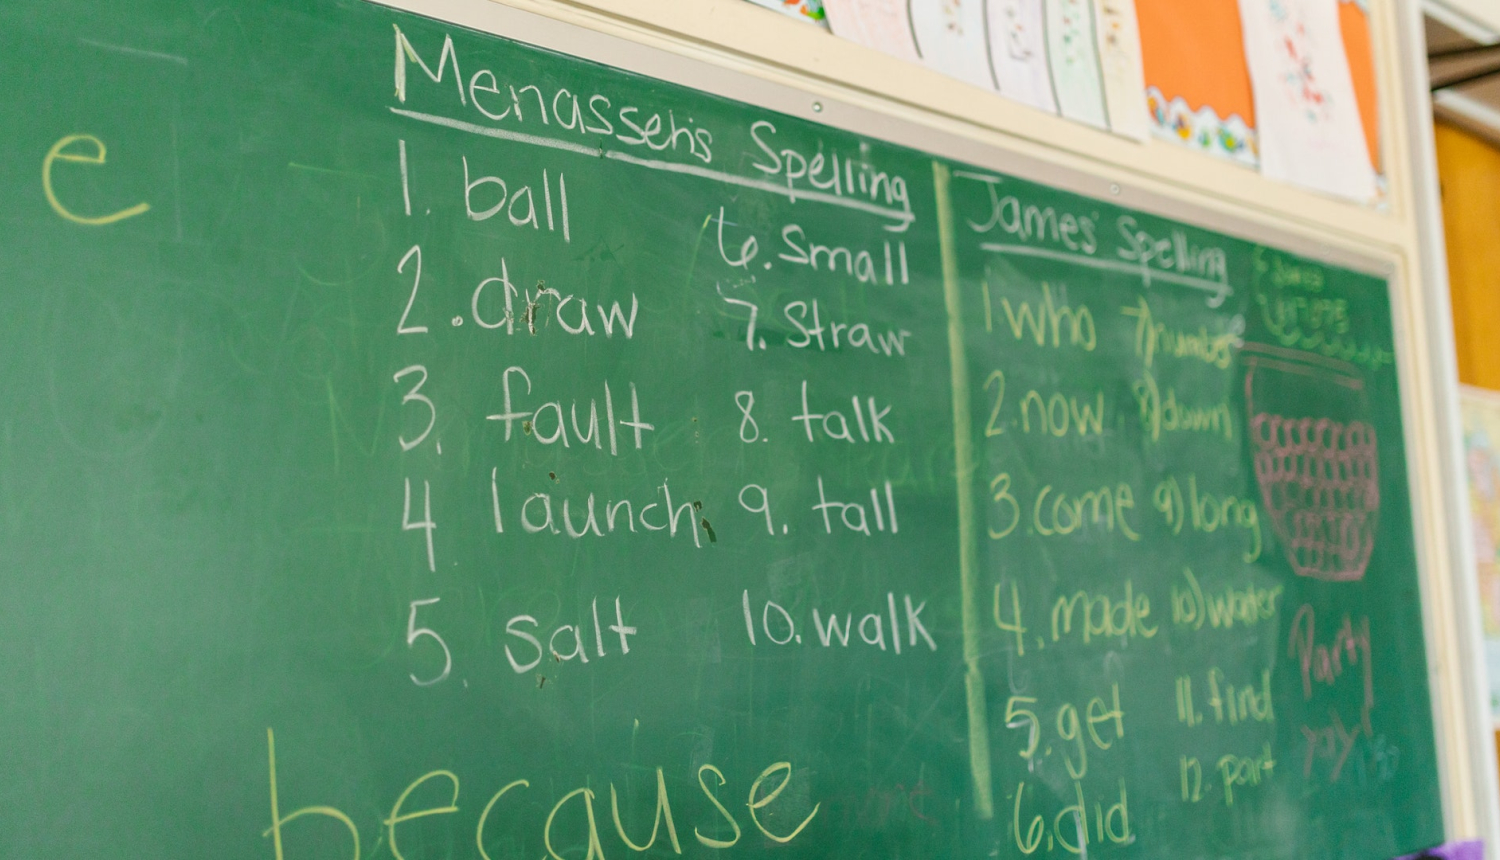 e
Menasseh's Spelling
1. ball
2. draw
3. fault
4 launch
5. salt
6. Small
7. Straw
8. talk
9. tall
10. walk
because
James' Spelling
1. who
2. now
3. come
4. made
5. get
6. did
7)
8) down
9) long
10) water
11. find
12. part
Party
yay!